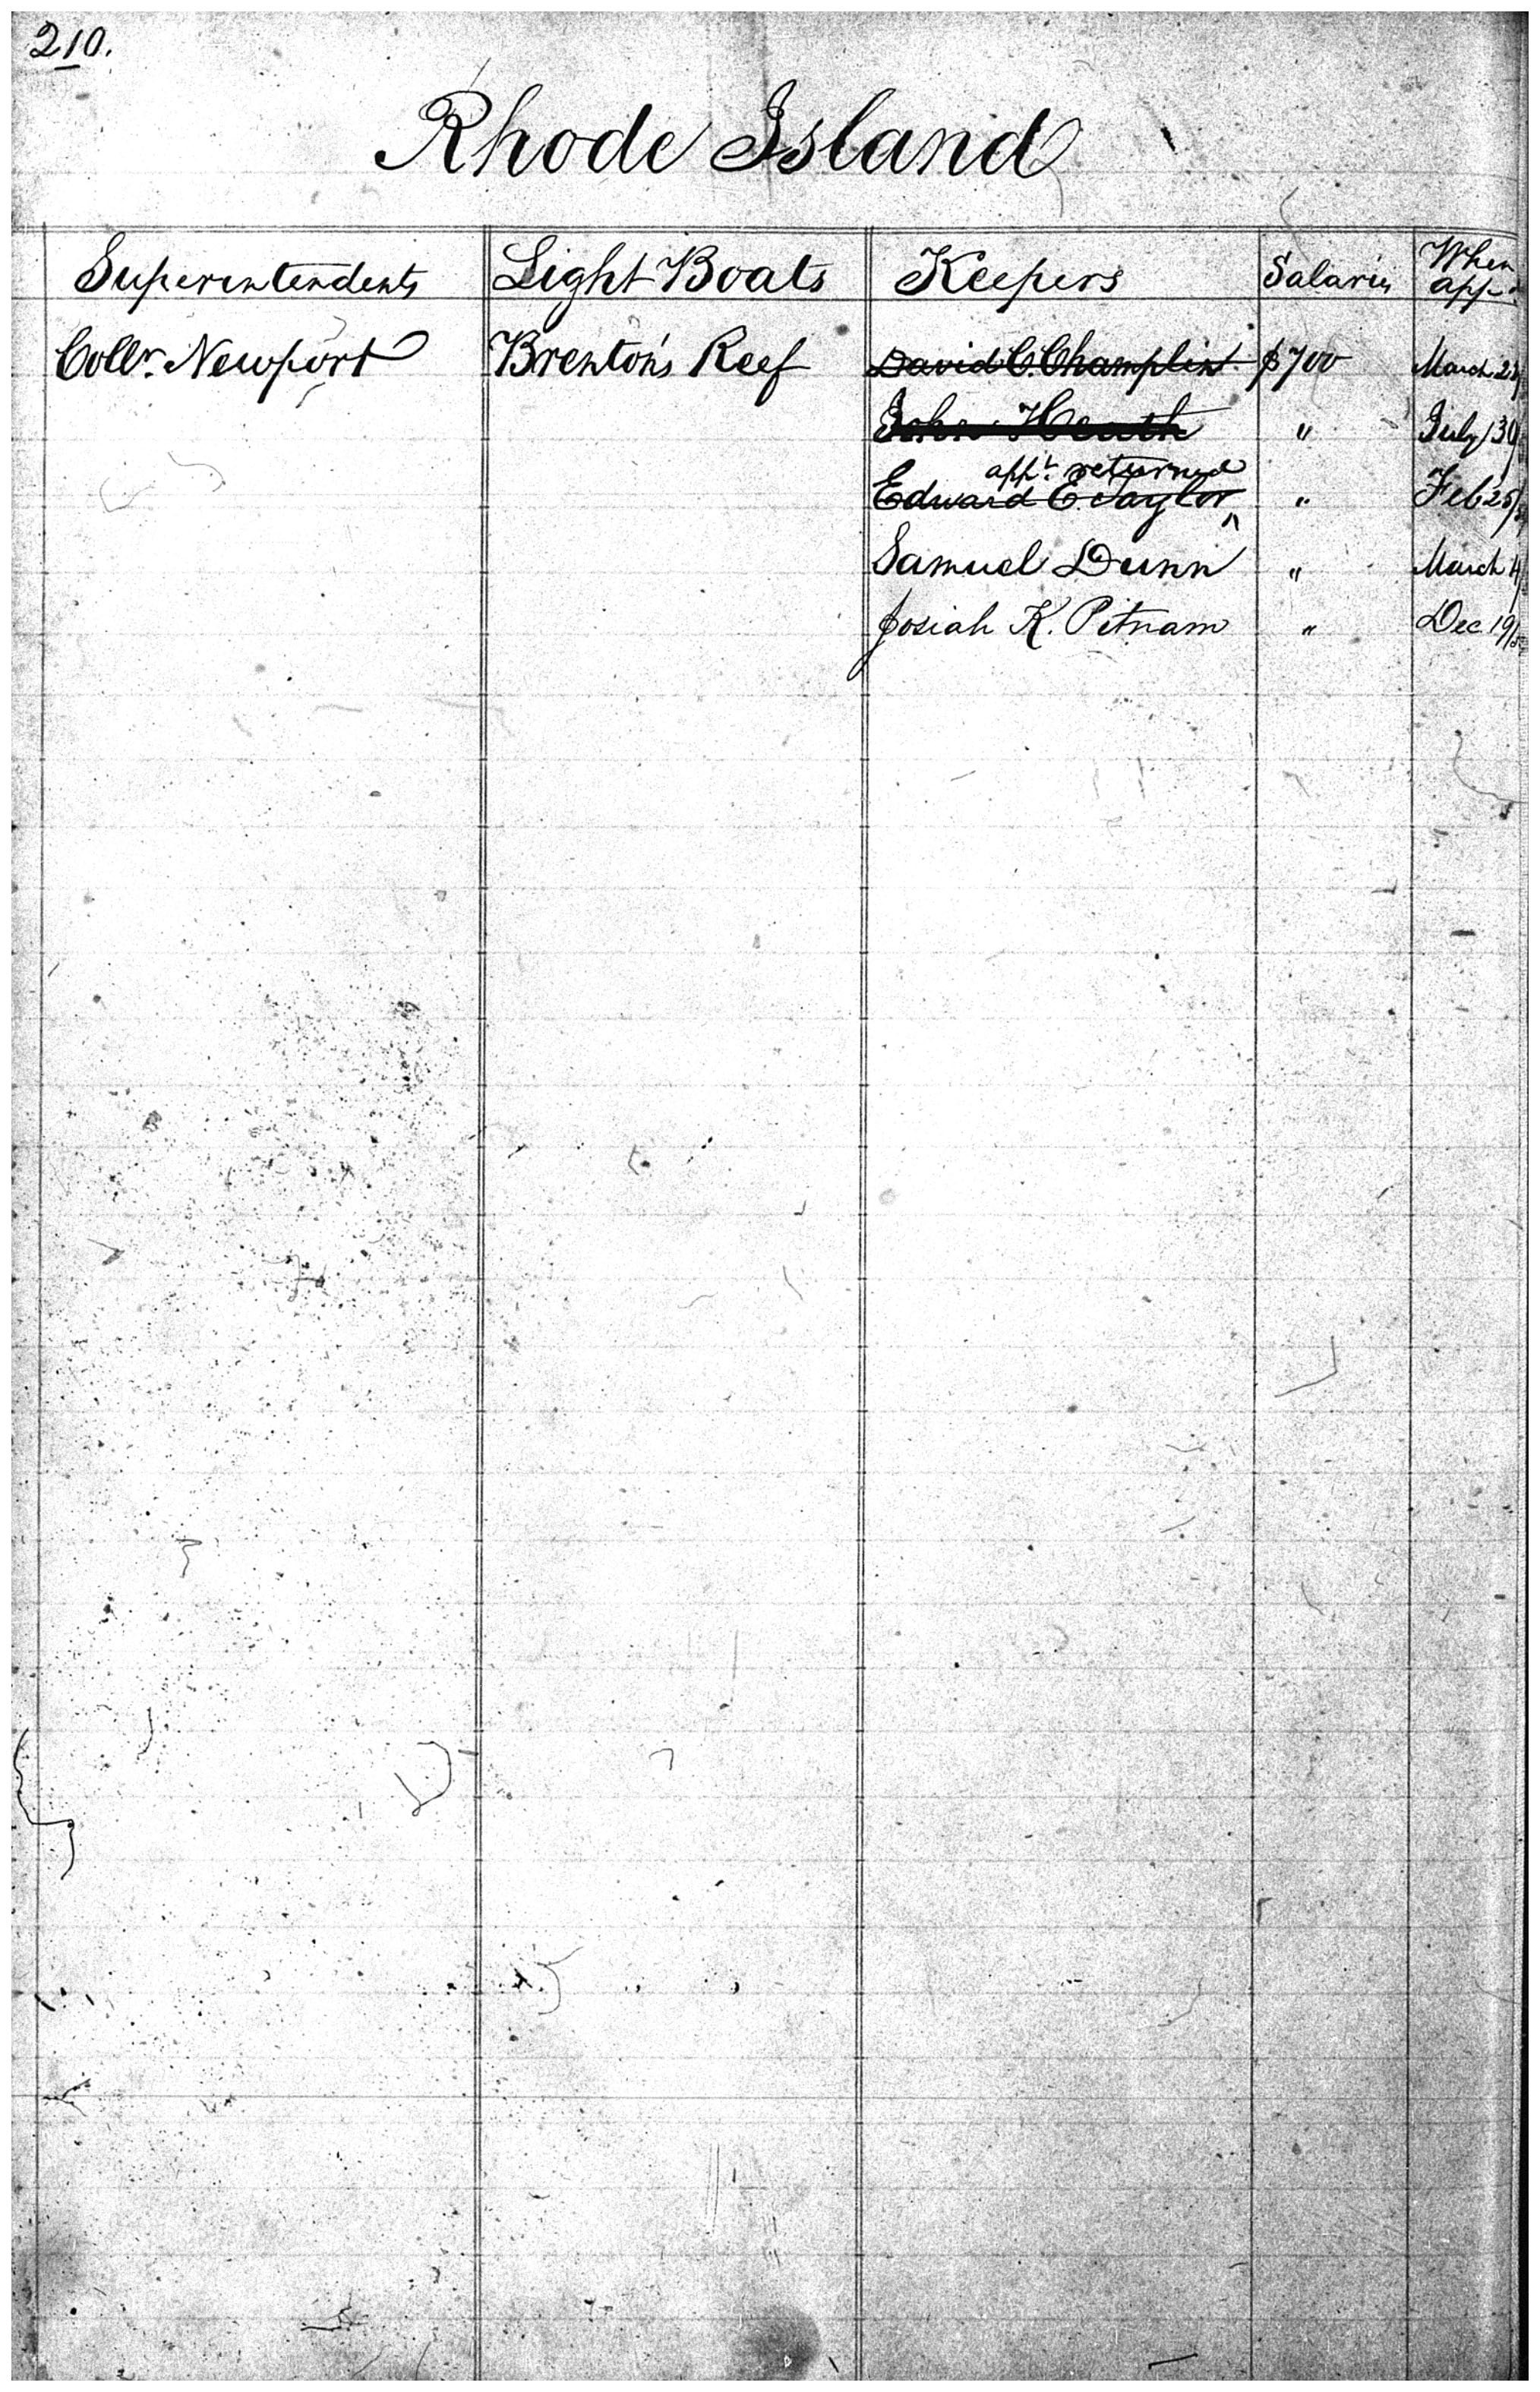 210.
Rhode Island
Superintendents Light Boats Keepers Salaries When app.
Collr. Newport Brenton's Reef David C. Champlin $700 March 23
John Heath " July 30
appt. returned
Edward E. Taylor " Feb 25
Samuel Dunn " March 4
Josiah K. Pitnam " Dec 19